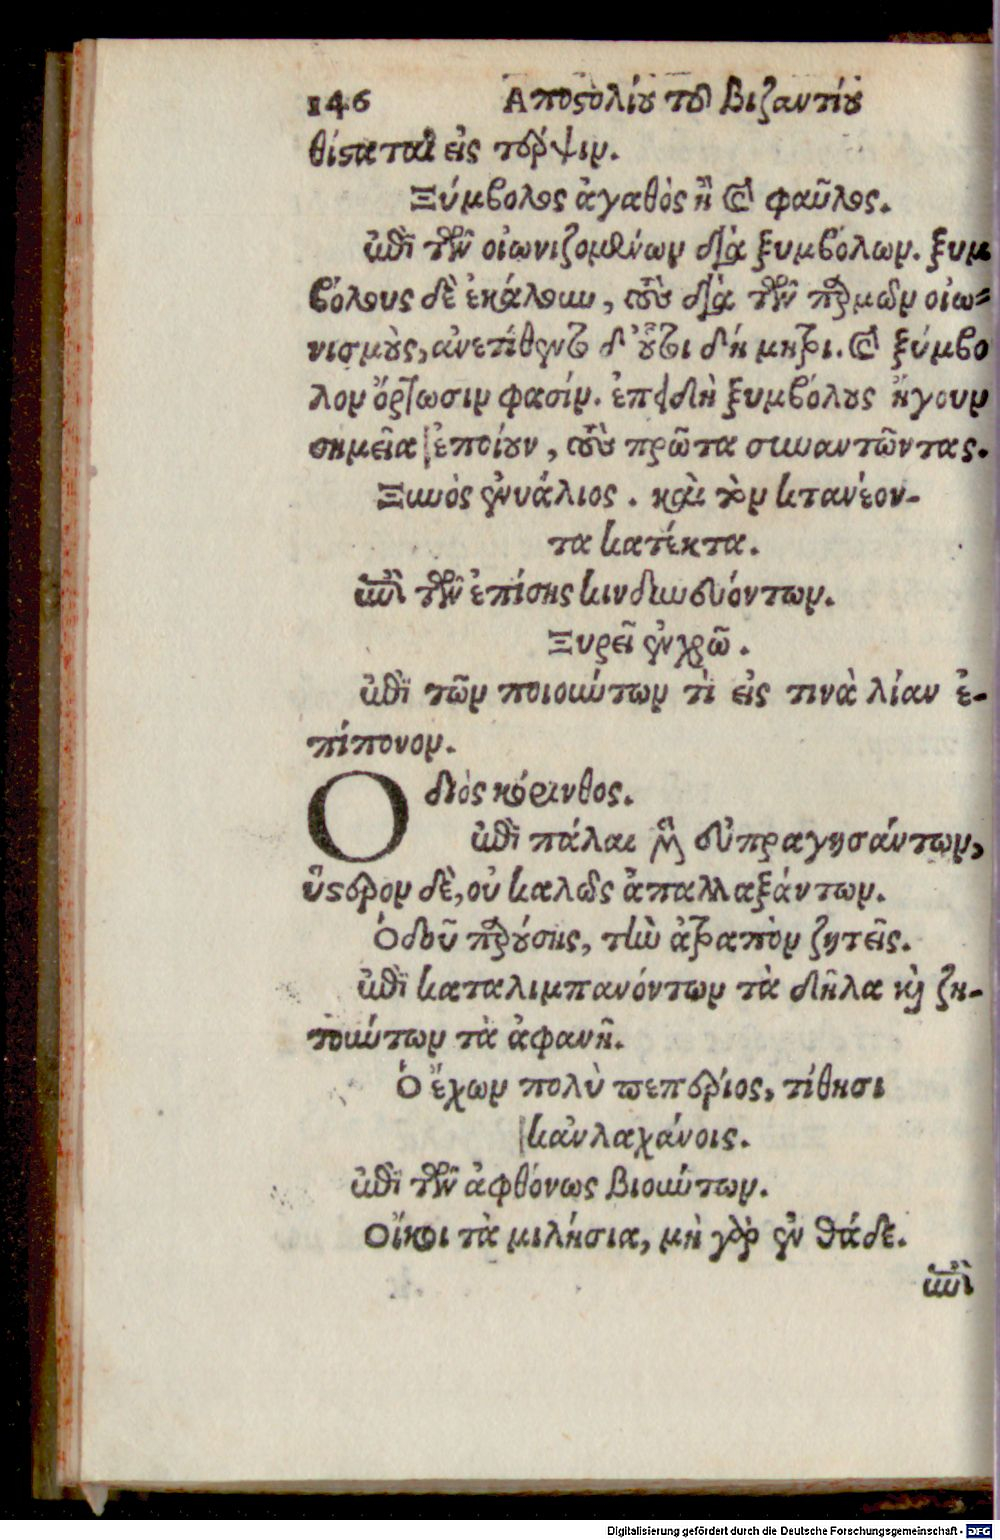 146 Αποστολίου τοῦ Βιζαντίου
θίσαται εἰς τέρψιν.
Ξύμβολος ἀγαθὸς ἢ καὶ φαῦλος.
ἐπὶ τῶν οἰωνιζομένων διὰ ξυμβόλων. ξυμ
βόλους δὲ ἐκάλουν, τοὺς διὰ τῶν πταρμῶν οἰω=
νισμοὺς, ἀνετίθεντο δ' οὗτοι δήμητρι. καὶ ξύμβο
λον ὄρθωσιν φασίν. ἐπειδὴ ξυμβόλους ἤγουν
σημεῖα ἐποίουν, τοὺς πρῶτα συναντῶντας.
Ξυνὸς ἐνυάλιος. καί τε τὸν κτανέον-
τα κατέκτα.
ἐπὶ τῶν ἐπίσης κινδυνευόντων.
Ξυρεῖ ἐν χρῷ.
ἐπὶ τῶν ποιούντων τὶ εἰς τινὰ λίαν ἐ-
πίπονον.
Ο διὸς κόρινθος.
ἐπὶ πάλαι μὲν εὐπραγησάντων,
ὕστερον δὲ, οὐ καλῶς ἀπαλλαξάντων.
Ὁδοῦ παρούσης, τὴν ἀτραπὸν ζητεῖς.
ἐπὶ καταλιμπανόντων τὰ δῆλα καὶ ζη-
τούντων τὰ ἀφανῆ.
Ὁ ἔχων πολὺ πεπέριος, τίθησι
κἀν λαχάνοις.
ἐπὶ τῶν ἀφθόνως βιούντων.
Οἴκοι τὰ μιλήσια, μὴ γὰρ ἐν θάδε.
ἐπὶ
Digitalisierung gefördert durch die Deutsche Forschungsgemeinschaft - DFG